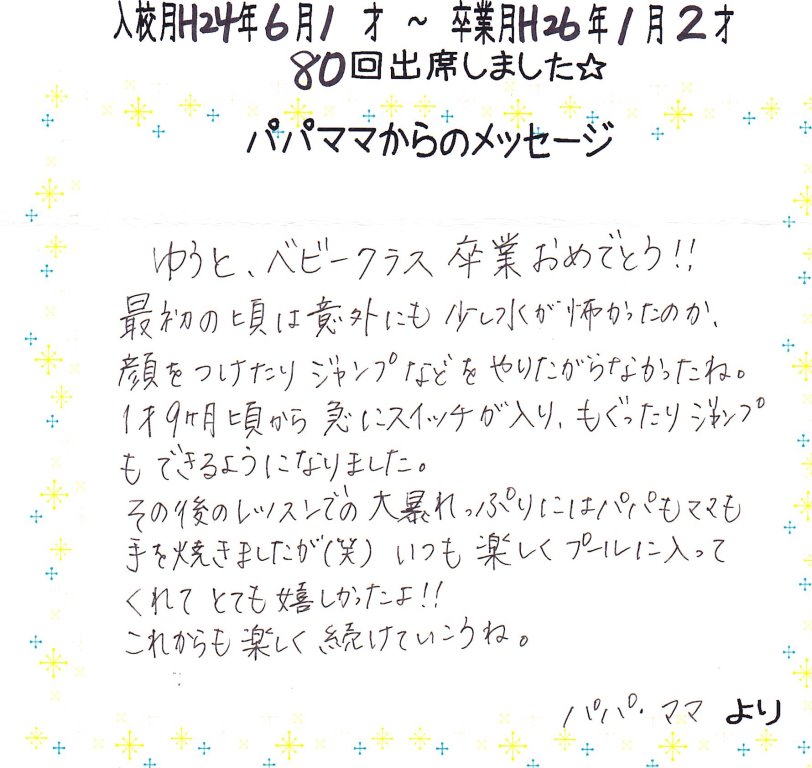 入校月H24年6月1才～卒業月H26年1月2才
80回出席しました☆
パパママからのメッセージ
ゆうと、ベビークラス 卒業おめでとう!!
最初の頃は意外にも 少し水が怖かったのか、
顔をつけたり ジャンプなどを やりたがらなかったね。
1才9ヶ月頃から 急にスイッチが入り、もぐったりジャンプ
も できるようになりました。
その後のレッスンでの 大暴れっぷりにはパパもママも
手を焼きましたが(笑) いつも 楽しく プールに入って
くれて とても 嬉しかったよ!!
これからも 楽しく 続けていこうね。
パパ・ママ より